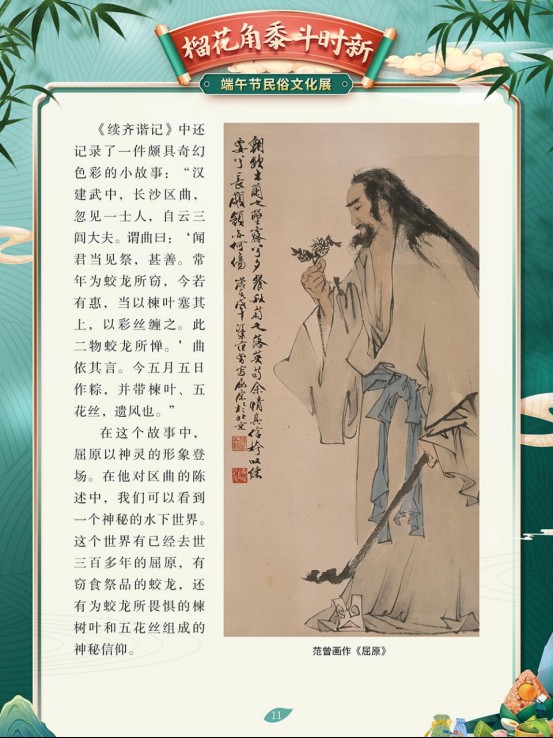 榴花角黍斗时新
端午节民俗文化展
《续齐谐记》中还
记录了一件颇具奇幻
色彩的小故事：“汉
建武中，长沙区曲，
忽见一士人，自云三
闾大夫。谓曲曰：‘闻
君当见祭，甚善。常
年为蛟龙所窃，今若
有惠，当以楝叶塞其
上，以彩丝缠之。此
二物蛟龙所惮。’曲
依其言。今五月五日
作粽，并带楝叶、五
花丝，遗风也。”
在这个故事中，
屈原以神灵的形象登
场。在他对区曲的陈
述中，我们可以看到
一个神秘的水下世界。
这个世界有已经去世
三百多年的屈原，有
窃食祭品的蛟龙，还
有为蛟龙所畏惧的楝
树叶和五花丝组成的
神秘信仰。
朝飲木蘭之墜露兮夕餐秋菊之落英苟余情其信姱以練
要兮長顑頷亦何傷
范曾画作《屈原》
11